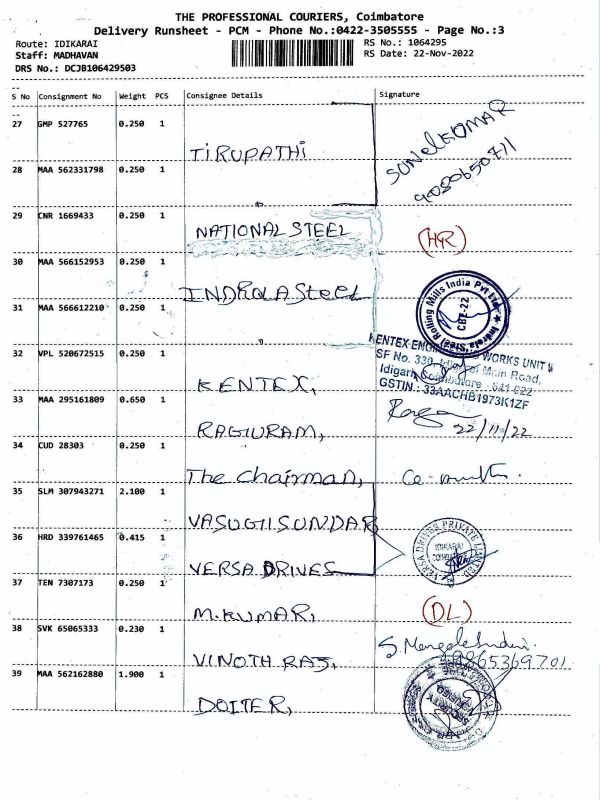 THE PROFESSIONAL COURIERS, Coimbatore
Delivery Runsheet - PCM - Phone No.:0422-3505555 - Page No.:3
Route: IDIKARAI
RS No.: 1064295
Staff: MADHAVAN
RS Date: 22-Nov-2022
DRS No.: DCJB106429503
S No Consignment No Weight PCS Consignee Details Signature
27 GMP 527765 0.250 1 TIRUPATHI
SUNELKUMAR
28 MAA 562331798 0.250 1
29 CNR 1669433 0.250 1 NATIONAL STEEL
30 MAA 566152953 0.250 1 INDROLA Steel
31 MAA 566612210 0.250 1
Indrola Steel Rolling Mills India Pvt Ltd
CBE-22
32 VPL 520672515 0.250 1 KENTEX,
KENTEX WORKS UNIT
SF No. 339, Main Road,
Coimbatore - 641 022
GSTIN.: 33AACHB1973K1ZF
33 MAA 295161809 0.650 1 RAGIURAM,
22/11/22
34 CUD 28303 0.250 1 The Chairman,
35 SLM 307943271 2.100 1 VASUGIISUNDAR
36 HRD 339761465 0.415 1 VERSA DRIVES
VERSA DRIVES PRIVATE LIMITED
37 TEN 7307173 0.250 1 M.KUMAR,
(DL)
38 SVK 65065333 0.230 1 VINOTH RAJ,
39 MAA 562162880 1.900 1 DOITER,